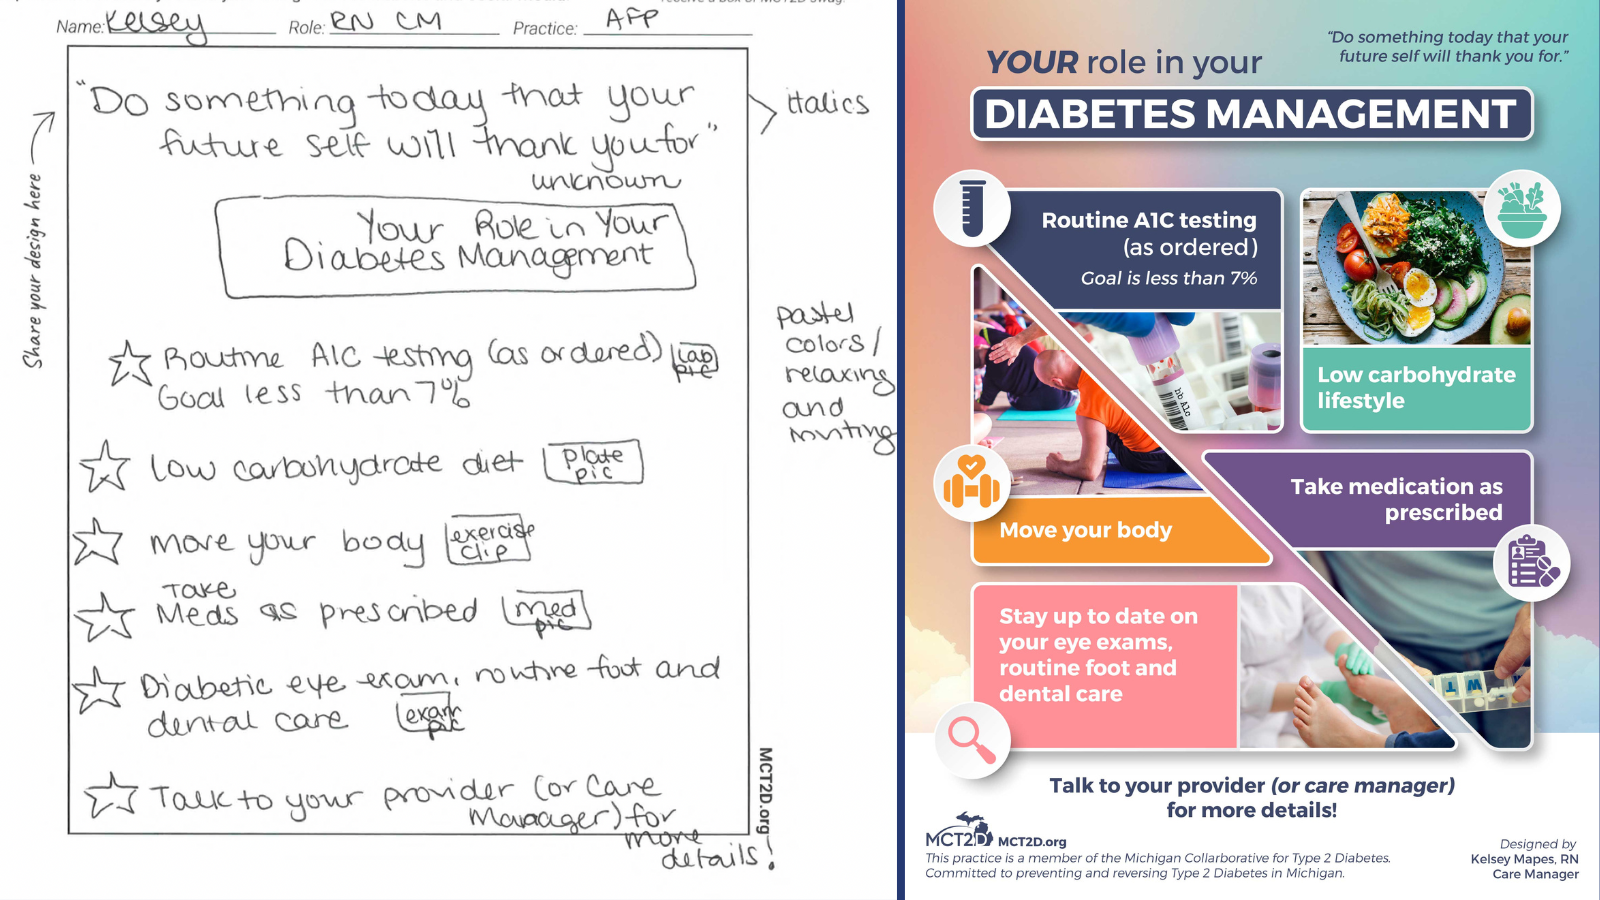 Name: Kelsey Role: RN CM Practice: AFP
Share your design here
"Do something today that your
future self will thank you for"
unknown
italics
Your Role in Your
Diabetes Management
pastel
colors/
relaxing
and
inviting
Routine A1C testing (as ordered) lab
pic
Goal less than 7%
low carbohydrate diet plate
pic
move your body exercise
clip
Take
Meds as prescribed med
pic
Diabetic eye exam, routine foot and
dental care exam
pic
Talk to your provider (or Care
Manager) for
more
details!
MCT2D.org
"Do something today that your
future self will thank you for."
YOUR role in your
DIABETES MANAGEMENT
Routine A1C testing
(as ordered)
Goal is less than 7%
hb A1c
Low carbohydrate
lifestyle
Move your body
Take medication as
prescribed
Stay up to date on
your eye exams,
routine foot and
dental care
T W
Talk to your provider (or care manager)
for more details!
MCT2D MCT2D.org
This practice is a member of the Michigan Collarborative for Type 2 Diabetes.
Committed to preventing and reversing Type 2 Diabetes in Michigan.
Designed by
Kelsey Mapes, RN
Care Manager